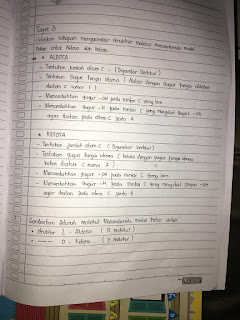 Tugas 3
Jelaskan tahapan menggambar struktur molekul monosakarida model
Fisher untuk Aldosa dan Ketosa
• ALDOSA
- Tentukan jumlah atom C. (Digambar Vertikal)
- Tentukan Gugus fungsi Utama (Aldosa dengan Gugus fungsi aldehid
diatom C nomor 1)
- Menambahkan gugus -OH pada rantai C yang lain.
- Menambahkan gugus -H pada rantai C yang mengikat gugus -OH
agar ikatan pada atom C jadi 4
• KETOSA
- Tentukan jumlah atom C (Digambar Vertikal)
- Tentukan gugus fungsi utama (ketosa dengan gugus fungsi
keton diatom C nomor 2)
- Menambahkan gugus -OH pada rantai C yang lain
- Menambahkan gugus -H pada rantai C yang mengikat gugus -OH
agar ikatan pada atom C jadi 4
Gambarkan Seluruh molekul Monosakarida model Fisher untuk
• Struktur L - Aldosa (15 molekul)
• D - Ketosa (7 molekul)